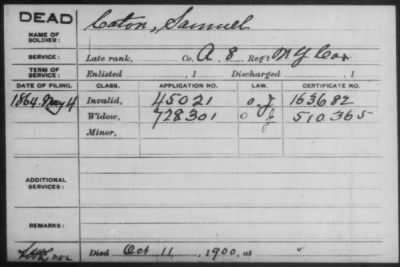 DEAD
NAME OF SOLDIER: Caton, Samuel
SERVICE: Late rank, Co. A, 8 Reg't N Y Cav
TERM OF SERVICE: Enlisted , 1 Discharged , 1
DATE OF FILING. CLASS. APPLICATION NO. LAW. CERTIFICATE NO.
1864 May 4 Invalid, 45021 163682
Widow, 728301 510.365
Minor,
ADDITIONAL SERVICES:
REMARKS:
Died Oct 11, 1900, at